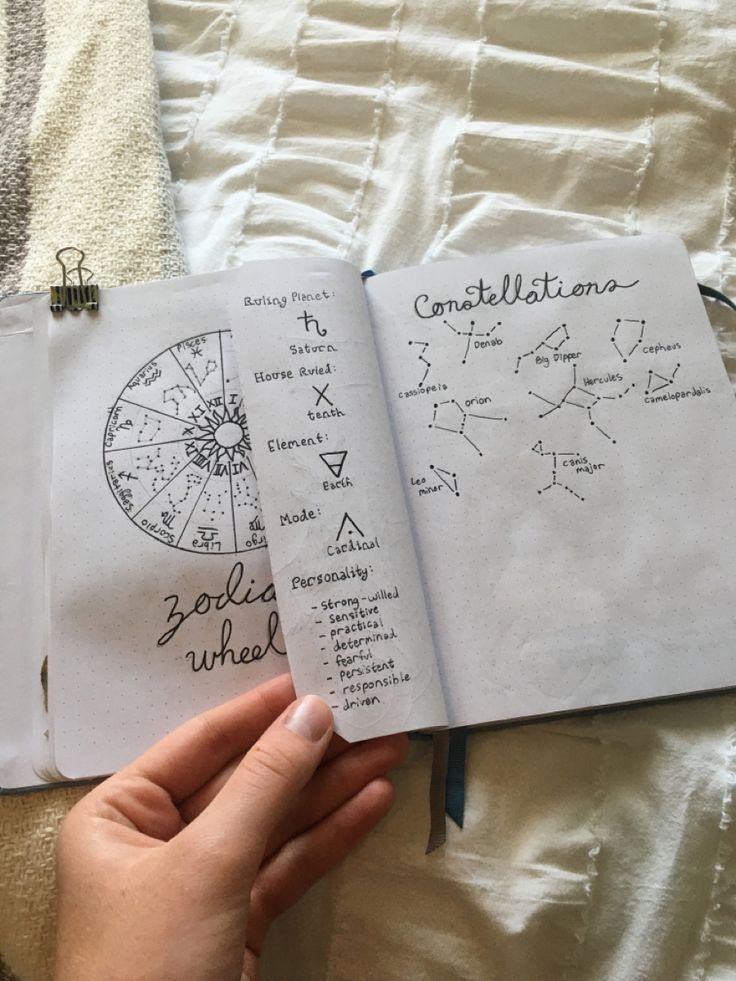 Pisces
Aquarius
Capricorn
Sagittarius
Scorpio
Libra
rgo
XII
I
XI
X
IX
VIII
VII
VI
zodia
wheel
Ruling Planet:
♄
Saturn
House Ruled:
X
tenth
Element:
Earth
Mode:
Cardinal
Personality:
- strong-willed
- sensitive
- practical
- determined
- fearful
- persistent
- responsible
- driven
Constellations
cassiopeia
Denab
Big Dipper
cepheus
orion
Hercules
camelopardalis
Leo
minor
canis
major